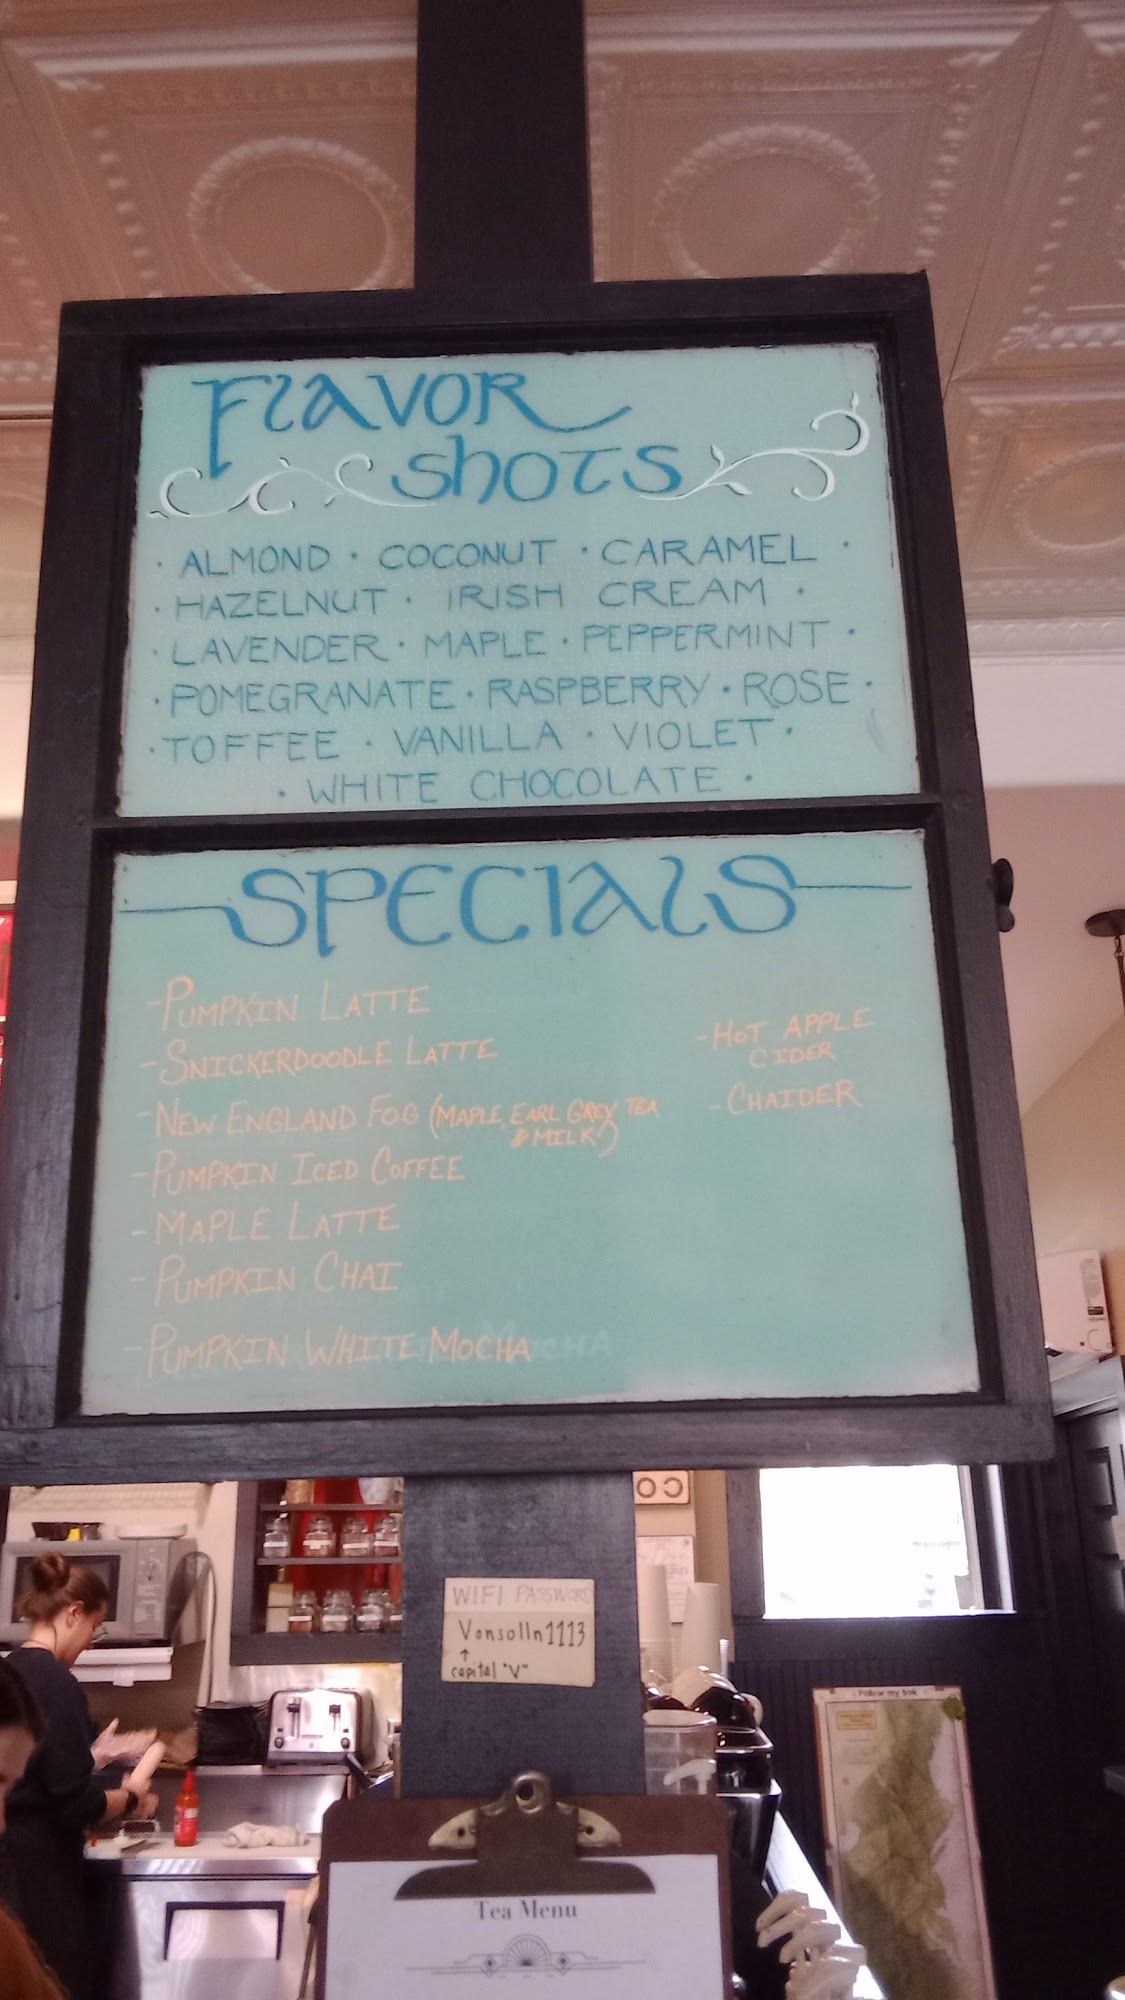 Flavor
Shots
· ALMOND · COCONUT · CARAMEL ·
· HAZELNUT · IRISH CREAM ·
· LAVENDER · MAPLE · PEPPERMINT ·
· POMEGRANATE · RASPBERRY · ROSE ·
· TOFFEE · VANILLA · VIOLET ·
· WHITE CHOCOLATE ·
SPECIALS
- PUMPKIN LATTE
- SNICKERDOODLE LATTE
- NEW ENGLAND FOG (MAPLE, EARL GREY TEA
& MILK)
- PUMPKIN ICED COFFEE
- MAPLE LATTE
- PUMPKIN CHAI
- PUMPKIN WHITE MOCHA
- HOT APPLE
CIDER
- CHAIDER
CO
WIFI PASSWORD
Vonsolln1113
↑
capital "V"
Follow my trek
Tea Menu